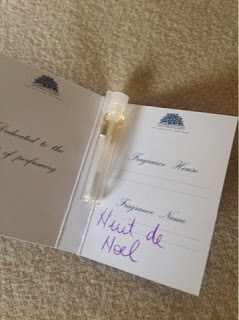 Dedicated to the
of perfumery
Fragrance House
Fragrance Name
Nuit de
Noel